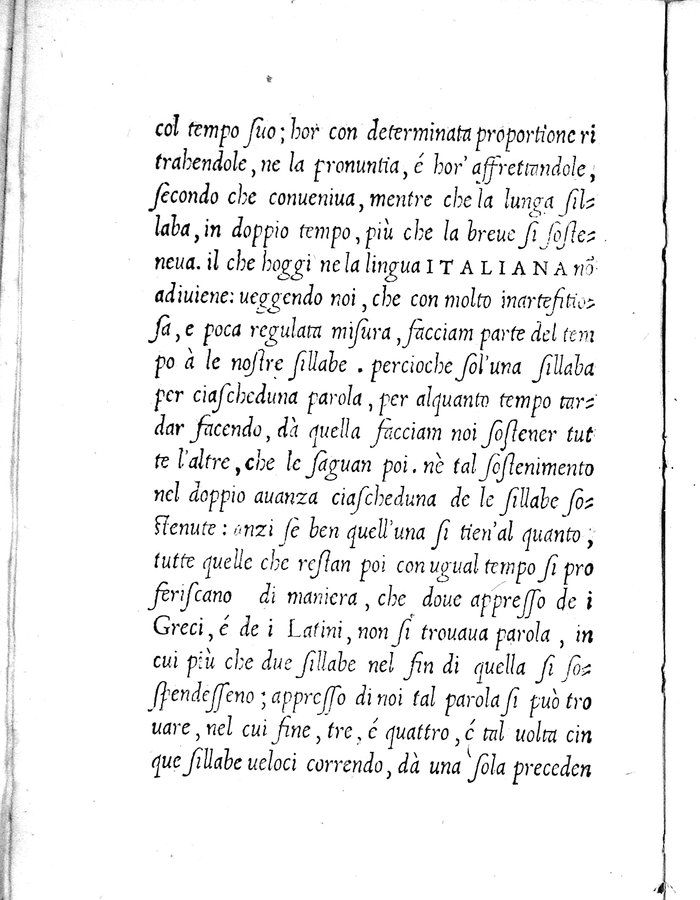 col tempo ſuo; hor con determinata proportione ri
trahendole, ne la pronuntia, é hor' affrettandole,
ſecondo che conueniua, mentre che la lunga ſil⸗
laba, in doppio tempo, più che la breue ſi ſoſte⸗
neua. il che hoggi ne la lingua ITALIANA nõ
adiuiene: ueggendo noi, che con molto inartefitio⸗
ſa, e poca regulata miſura, facciam parte del tem
po à le noſtre ſillabe. percioche ſol'una ſillaba
per ciaſcheduna parola, per alquanto tempo tar⸗
dar facendo, dà quella facciam noi ſoſtener tut
te l'altre, che le ſaguan poi. nè tal ſoſtenimento
nel doppio auanza ciaſcheduna de le ſillabe ſo⸗
ſtenute: anzi ſe ben quell'una ſi tien'al quanto,
tutte quelle che reſtan poi con ugual tempo ſi pro
feriſcano di maniera, che doue appreſſo de i
Greci, é de i Latini, non ſi trouaua parola, in
cui più che due ſillabe nel fin di quella ſi ſo⸗
ſpendeſſeno; appreſſo di noi tal parola ſi può tro
uare, nel cui fine, tre, é quattro, é tal uolta cin
que ſillabe ueloci correndo, dà una ſola preceden